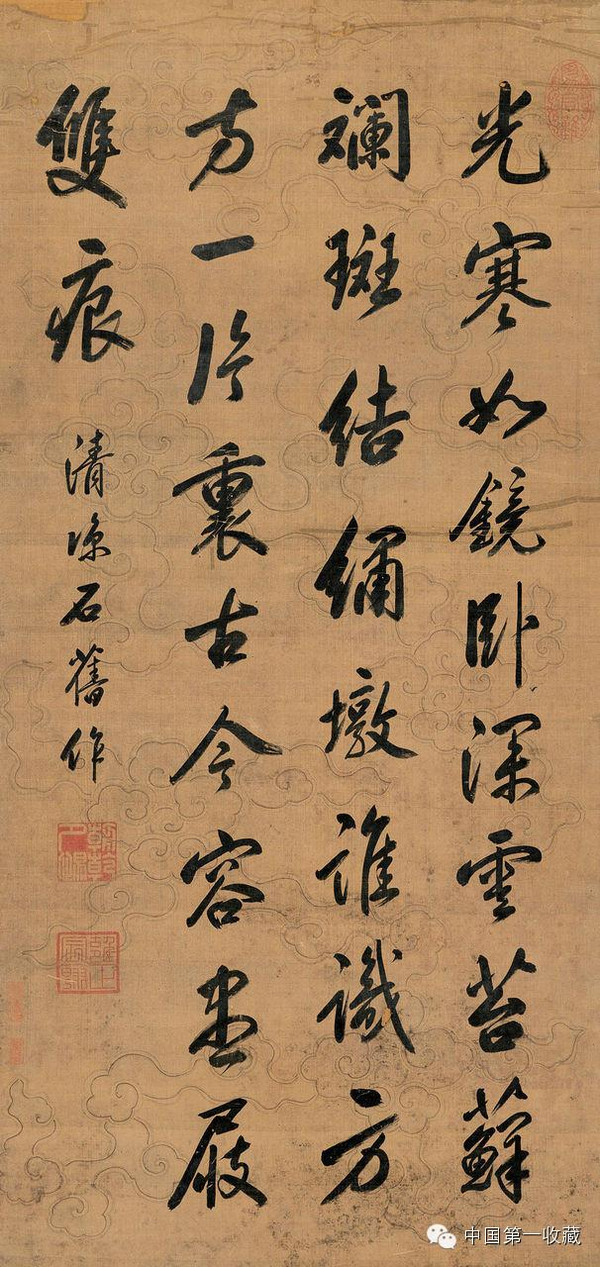 光寒如鏡卧深雲苔蘚
斕斑結繡墩誰識方
方一片裏古今容盡屐
雙痕
清凉石舊作
中国第一收藏